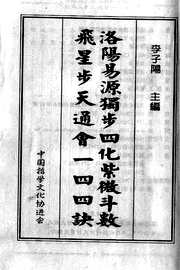 李子陽 主編
洛陽易源獨步四化紫微斗數
飛星步天通會一四四訣
中国哲学文化协进会